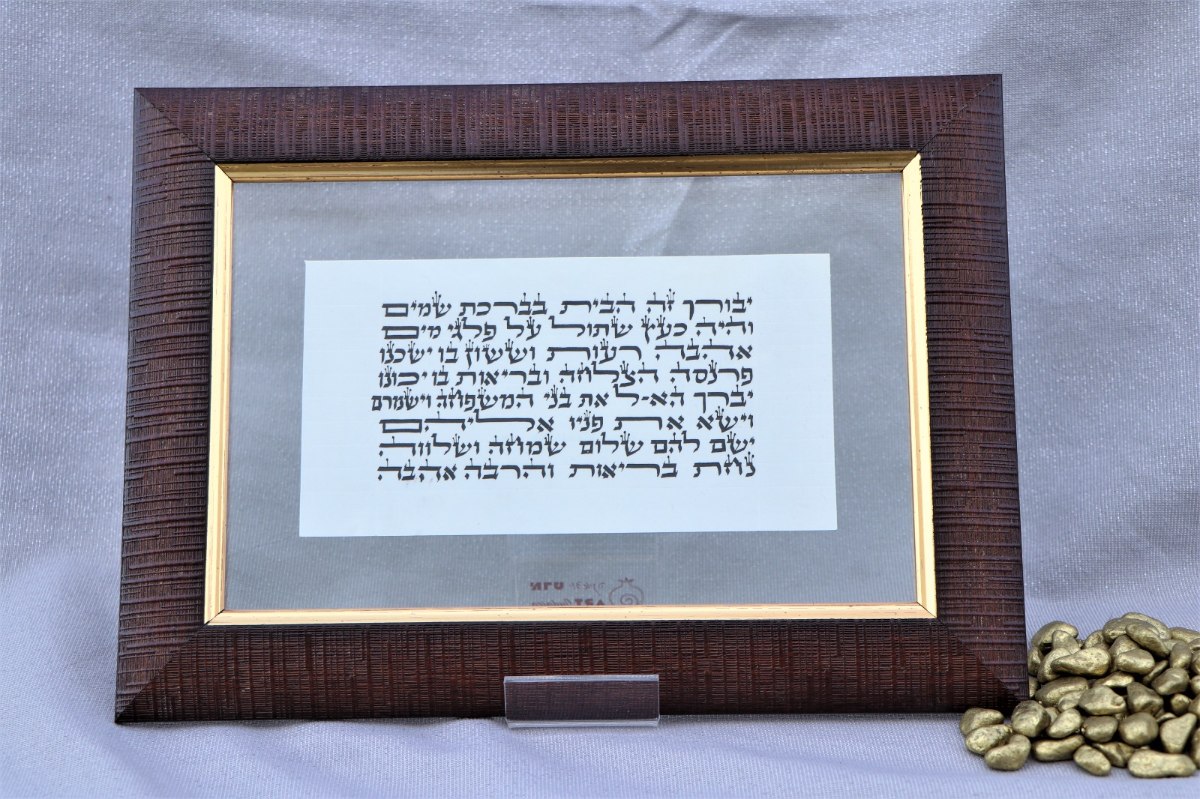 יבורך זה הבית בברכת שמים
והיה כעץ שתול על פלגי מים
אהבה רעות וששון בו ישכנו
פרנסה הצלחה ובריאות בו יכונו
יברך הא-ל את בני המשפחה וישמרם
וישא את פניו אליהם
ישם להם שלום שמחה ושלווה
נחת בריאות והרבה אהבה